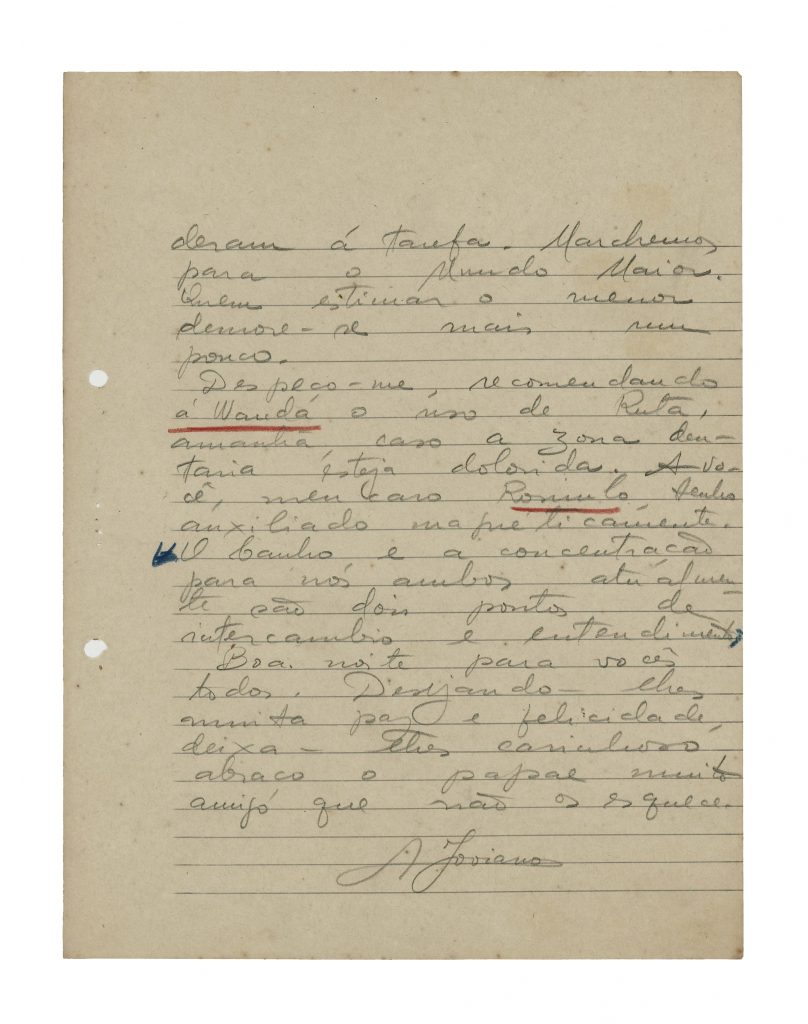 deram á tarefa. Marchemos
para o Mundo Maior.
Quem estimar o menor
demore-se mais um
pouco.
Despeço-me, recomendando
á Wanda o uso de Ruta,
amanhã caso a zona den-
taria esteja dolorida. A vo-
cê, meu caro Romulo, tenho
auxiliado magneticamente.
O banho e a concentração
para nós ambos atualmen-
te são dois pontos de
intercambio e entendimento,
Boa noite para vocês
todos. Desejando-lhes
muita paz e felicidade,
deixa-lhes carinhoso
abraço o papae muito
amigo que não os esquece.
A Joviano